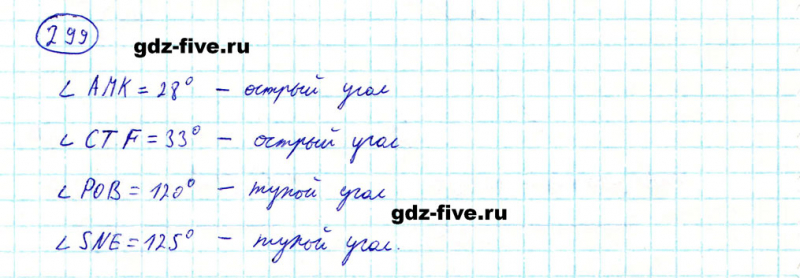 299
gdz-five.ru
∠ AMK = 28° - острый угол
∠ CTF = 33° - острый угол
∠ POB = 120° - тупой угол
gdz-five.ru
∠ SNE = 125° - тупой угол.